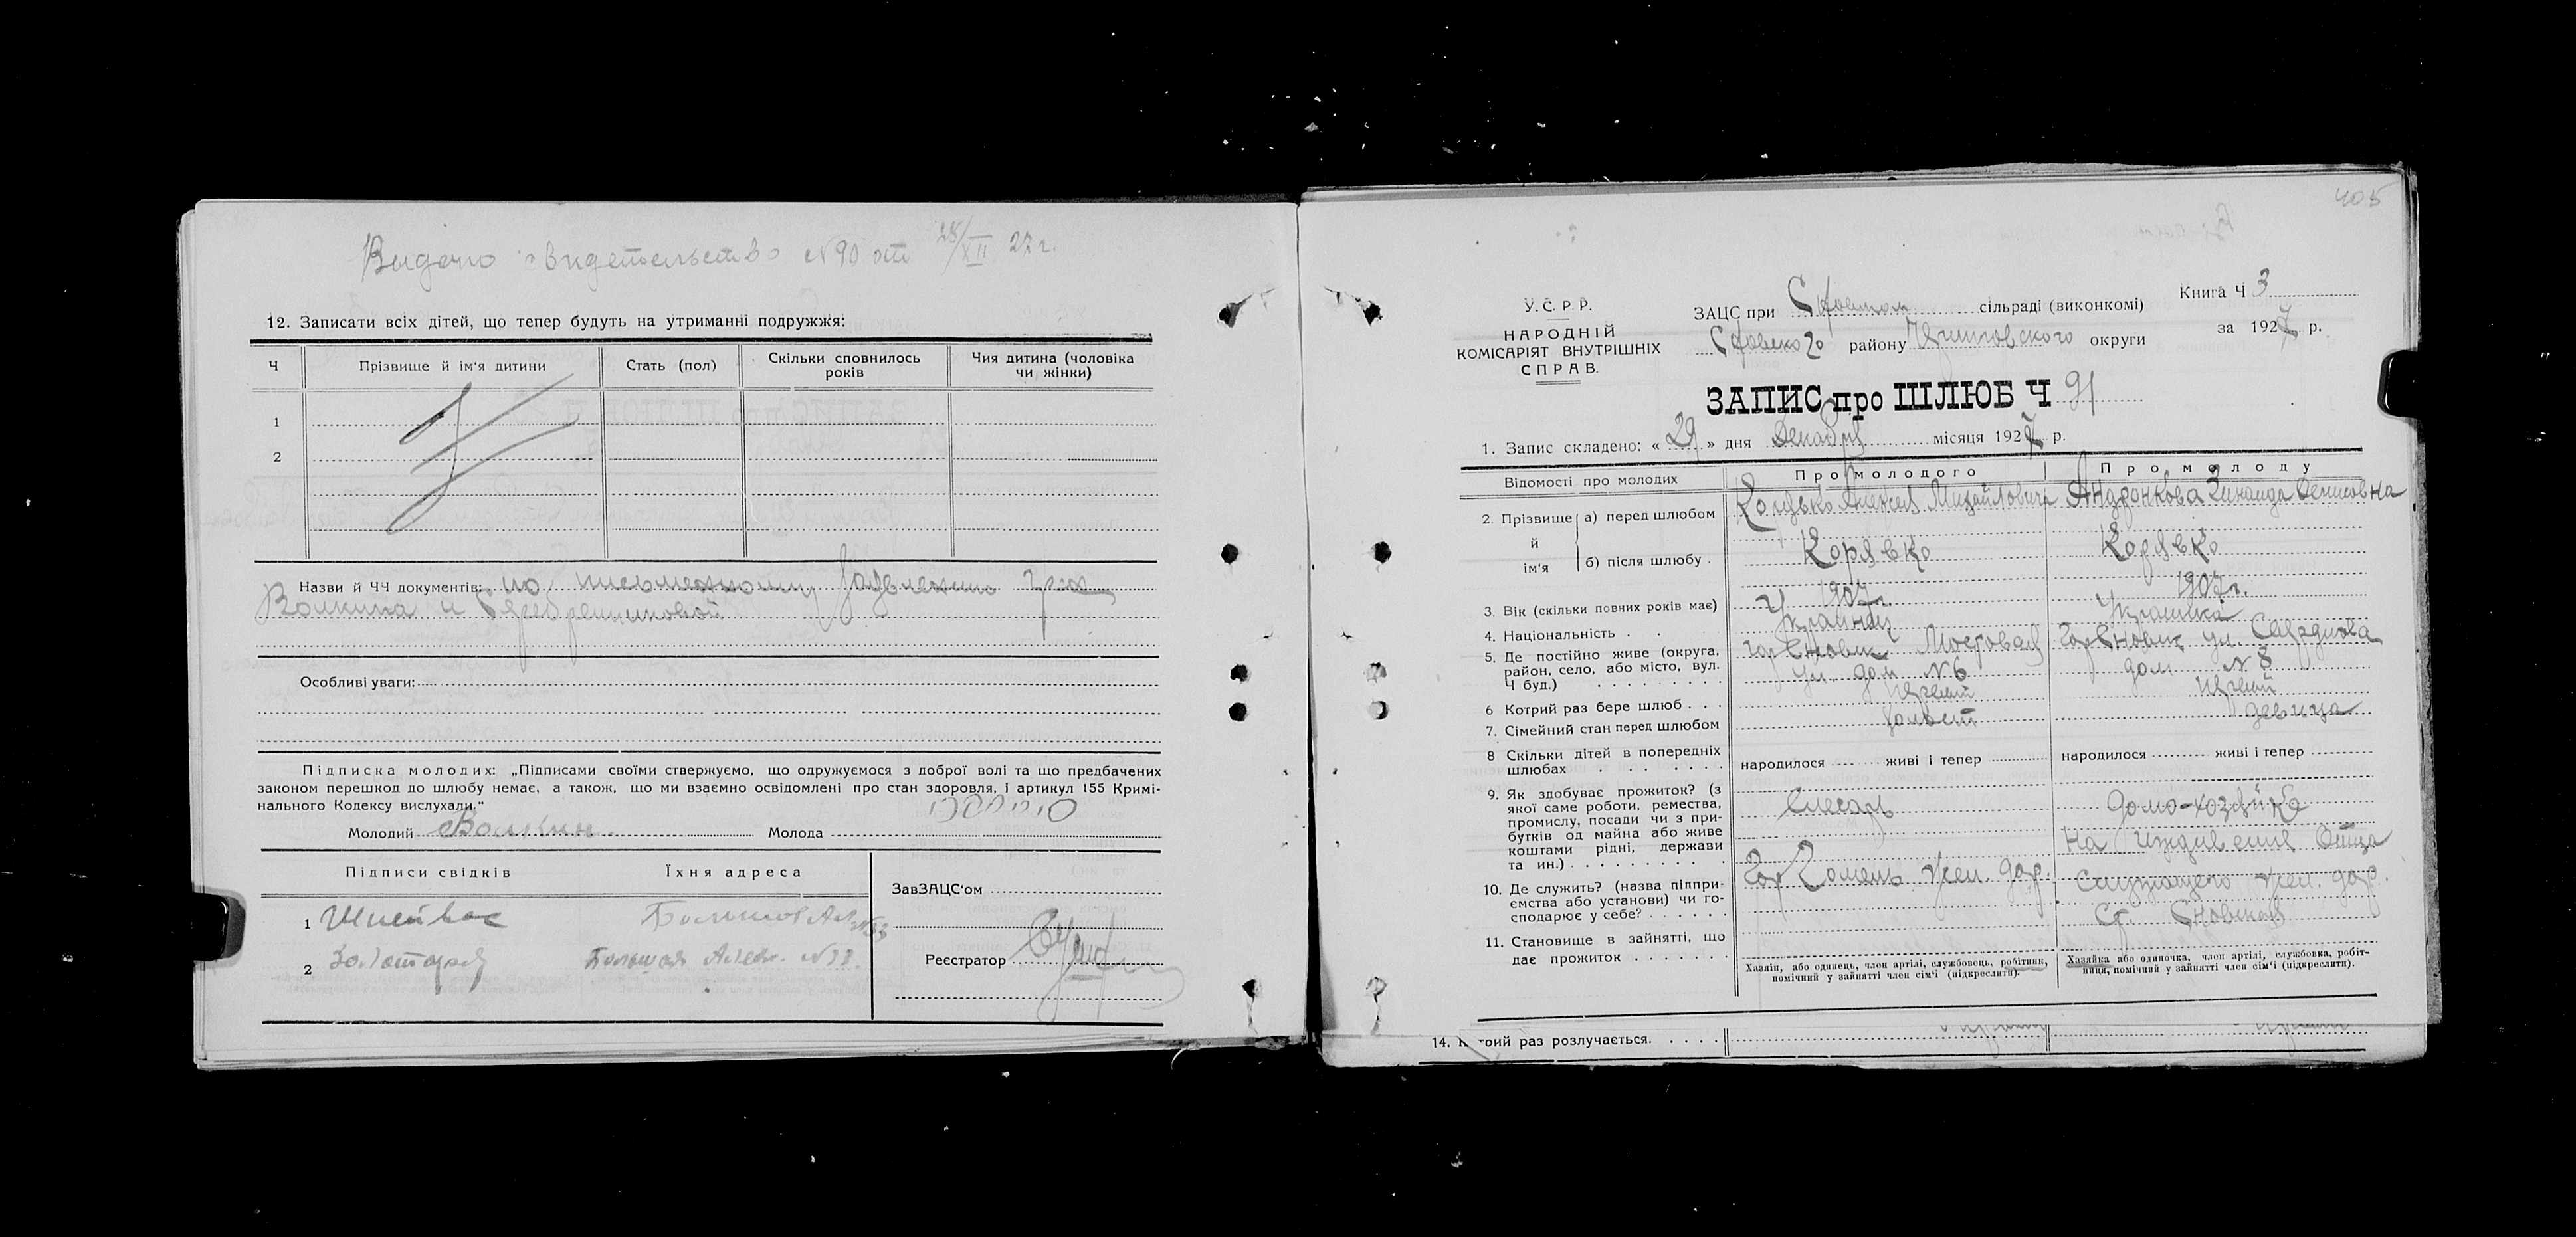 Видано свидетельство №90 от 28/XII 27г.
12. Записати всіх дітей, що тепер будуть на утриманні подружжя:
Ч Прізвище й ім'я дитини Стать (пол) Скільки сповнилось років Чия дитина (чоловіка чи жінки)
1
2
Назви й ЧЧ документів: по письменному заявлению гр-н
Волкина и
Особливі уваги:
Підписка молодих: „Підписами своїми стверджуємо, що одружуємося з доброї волі та що предбачених
законом перешкод до шлюбу немає, а також, що ми взаємно освідомлені про стан здоровля, і артикул 155 Кримі-
нального Кодексу вислухали."
Молодий Волкин Молода
Підписи свідків Їхня адреса
ЗавЗАЦС'ом
1
2 Большая Алек.
Реєстратор
405
У. С. Р. Р.
НАРОДНІЙ
КОМІСАРІЯТ ВНУТРІШНІХ
СПРАВ.
ЗАЦС при сільраді (виконкомі)
району округи
Книга Ч 3
за 1927 р.
ЗАПИС про ШЛЮБ Ч 91
1. Запис складено: « 29 » дня Декабря місяця 1927 р.
Відомості про молодих Про молодого Про молоду
2. Прізвище й ім'я а) перед шлюбом Алексей Михайлович Андронкова Зинаида Денисовна
б) після шлюбу . Корявко Корявко
3. Вік (скільки повних років має) 1907г. 1907г.
4. Національність . . Украинец Украинка
5. Де постійно живе (округа, район, село, або місто, вул. Ч буд.) гор Сновск Мостовая ул. дом №6 гор Сновск ул. Свердлова дом №8
6 Котрий раз бере шлюб . . . первый первый
7. Сімейний стан перед шлюбом холост девица
8 Скільки дітей в попередніх шлюбах народилося живі і тепер народилося живі і тепер
9. Як здобуває прожиток? (з якої саме роботи, ремества, промислу, посади чи з прибутків од майна або живе коштами рідні, держави та ин.) Слесарь домо-хозяйка на иждивении отца
10. Де служить? (назва підприємства або установи) чи господарює у себе? Гор Гомель жел. дор. служащего жел. дор. ст. Сновская
11. Становище в зайнятті, що дає прожиток
Хазяін, або одинець, член артілі, службовець, робітник, помічний у зайнятті член сім'ї (підкреслити).
Хазяйка або одиночка, член артілі, службовка, робітниця, помічний у зайнятті член сім'ї (підкреслити).
14. раз розлучається.